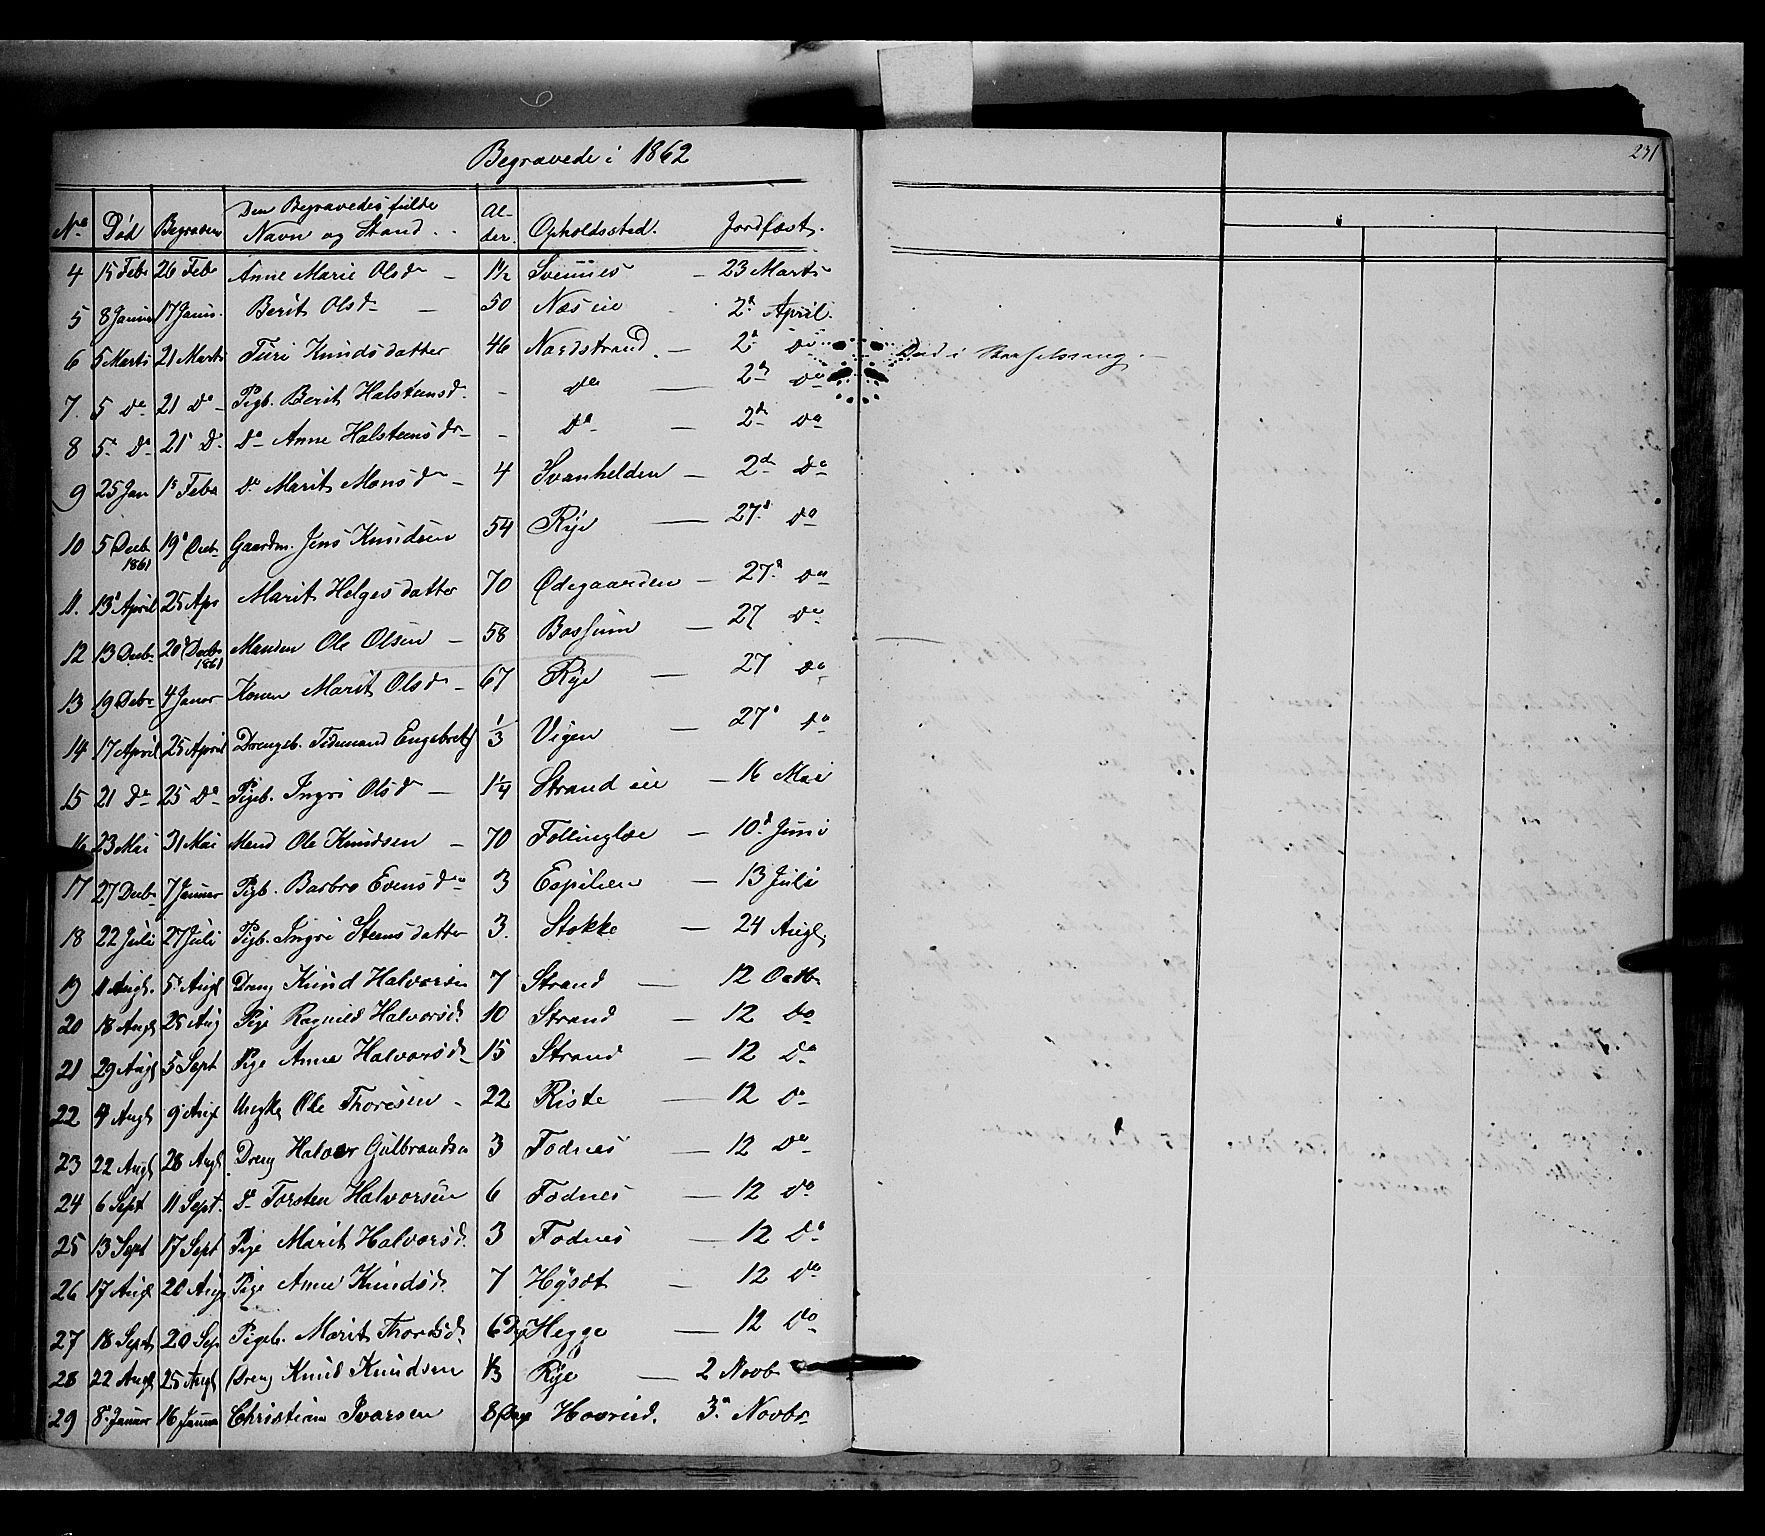 231
Begravede i 1862
No Død Begraven Den Begravedes fulde Navn og Stand. Alder. Opholdssted. Jordfæst.
4 15 Febr 26 Febr Anne Marie Olsdr – 1½ Svennes – 23 Marts
5 8 Januar 17 Janu. Berit Olsdr – 50 Næs eie 2d April.
6 5 Marts 21 Marts Turi Knudsdatter 46 Nordstrand. – 2d Do Død i Barselseng. –
7. 5 Do 21 Do – Pigb. Berit Halsteensd. - do – 2d Do
8 5 Do 21 D. Do Anne Halsteensdr – - Do – 2d Do
9 25 Jan 1s Febr Do Marit Monsdr – 4 Svanhelden – 2d Do
10 5 Decb 1861 19d Decb Gaardm. Jens Knudsen 54 Rye – 27d Do
11. 13d April 25 Apr Marit Helgesdatter 70 Ødegaarden – 27d Do
12 13 Decb 20d Decbr 1861 Manden Ole Olsen – 58 Bossum – 27 Do
13 19 Debr 4 Januar Konen Marit Olsdr – 67 Rye – 27 Do
14 17 April 25 April Drengeb. Tidemand Engebrets 1/3 Vigen – 27d Do
15 21 Do 25 Do Pigeb. Ingri Olsdr – 1¼ Strand eie – 16 Mai
16 23 Mai 31 Mai Mand Ole Knudsen – 70 Follinglæe – 10d Juni
17 27 Decbr 7 Januar Pigb. Barbro Evensdr 3 Espelien – 13 Juli
18 22 Juli 27 Juli Pigb. Ingri Steensdatter 3. Stokke – 24 Augt
19 11 Augt. 5 Augt Dreng Knud Halvorsen 7 Strand – 12 Octb
20 18 Augt 25 Aug Pige Ragnild Halvorsd. 10 Strand – 12 Do
21 29 Augt 5 Sept Pige Anne Halvorsdr 15 Strand – 12 Do
22 4 Augt 9 Augt Ungkl Ole Thoresen – 22 Riste – 12 Do
23 22 Augt 28 Augt Dreng Halvor Gulbrandsen 3 Fodnes – 12 Do
24 6 Sept 11 Sept. Do Torsten Halvorsen 6 Fodnes – 12 Do
25 13 Sept 17 Sept Pige Marit Halvorsd. 3 Fodnes – 12 Do
26 17 Augt 20 Aug Pige Anne Knudsd. 7 Høysæt – 12 Do
27 18 Sept 20 Sep Pigeb. Marit Thordsdr 6 Dg Hegge – 12 Do
28 22 Augt 25 Augt Dreng Knud Knudsen 1/3 Rye – 2 Novb
29 8 Januar 16 Januar Christian Ivarsen 8 Dage Hovrud. 3d Novbr